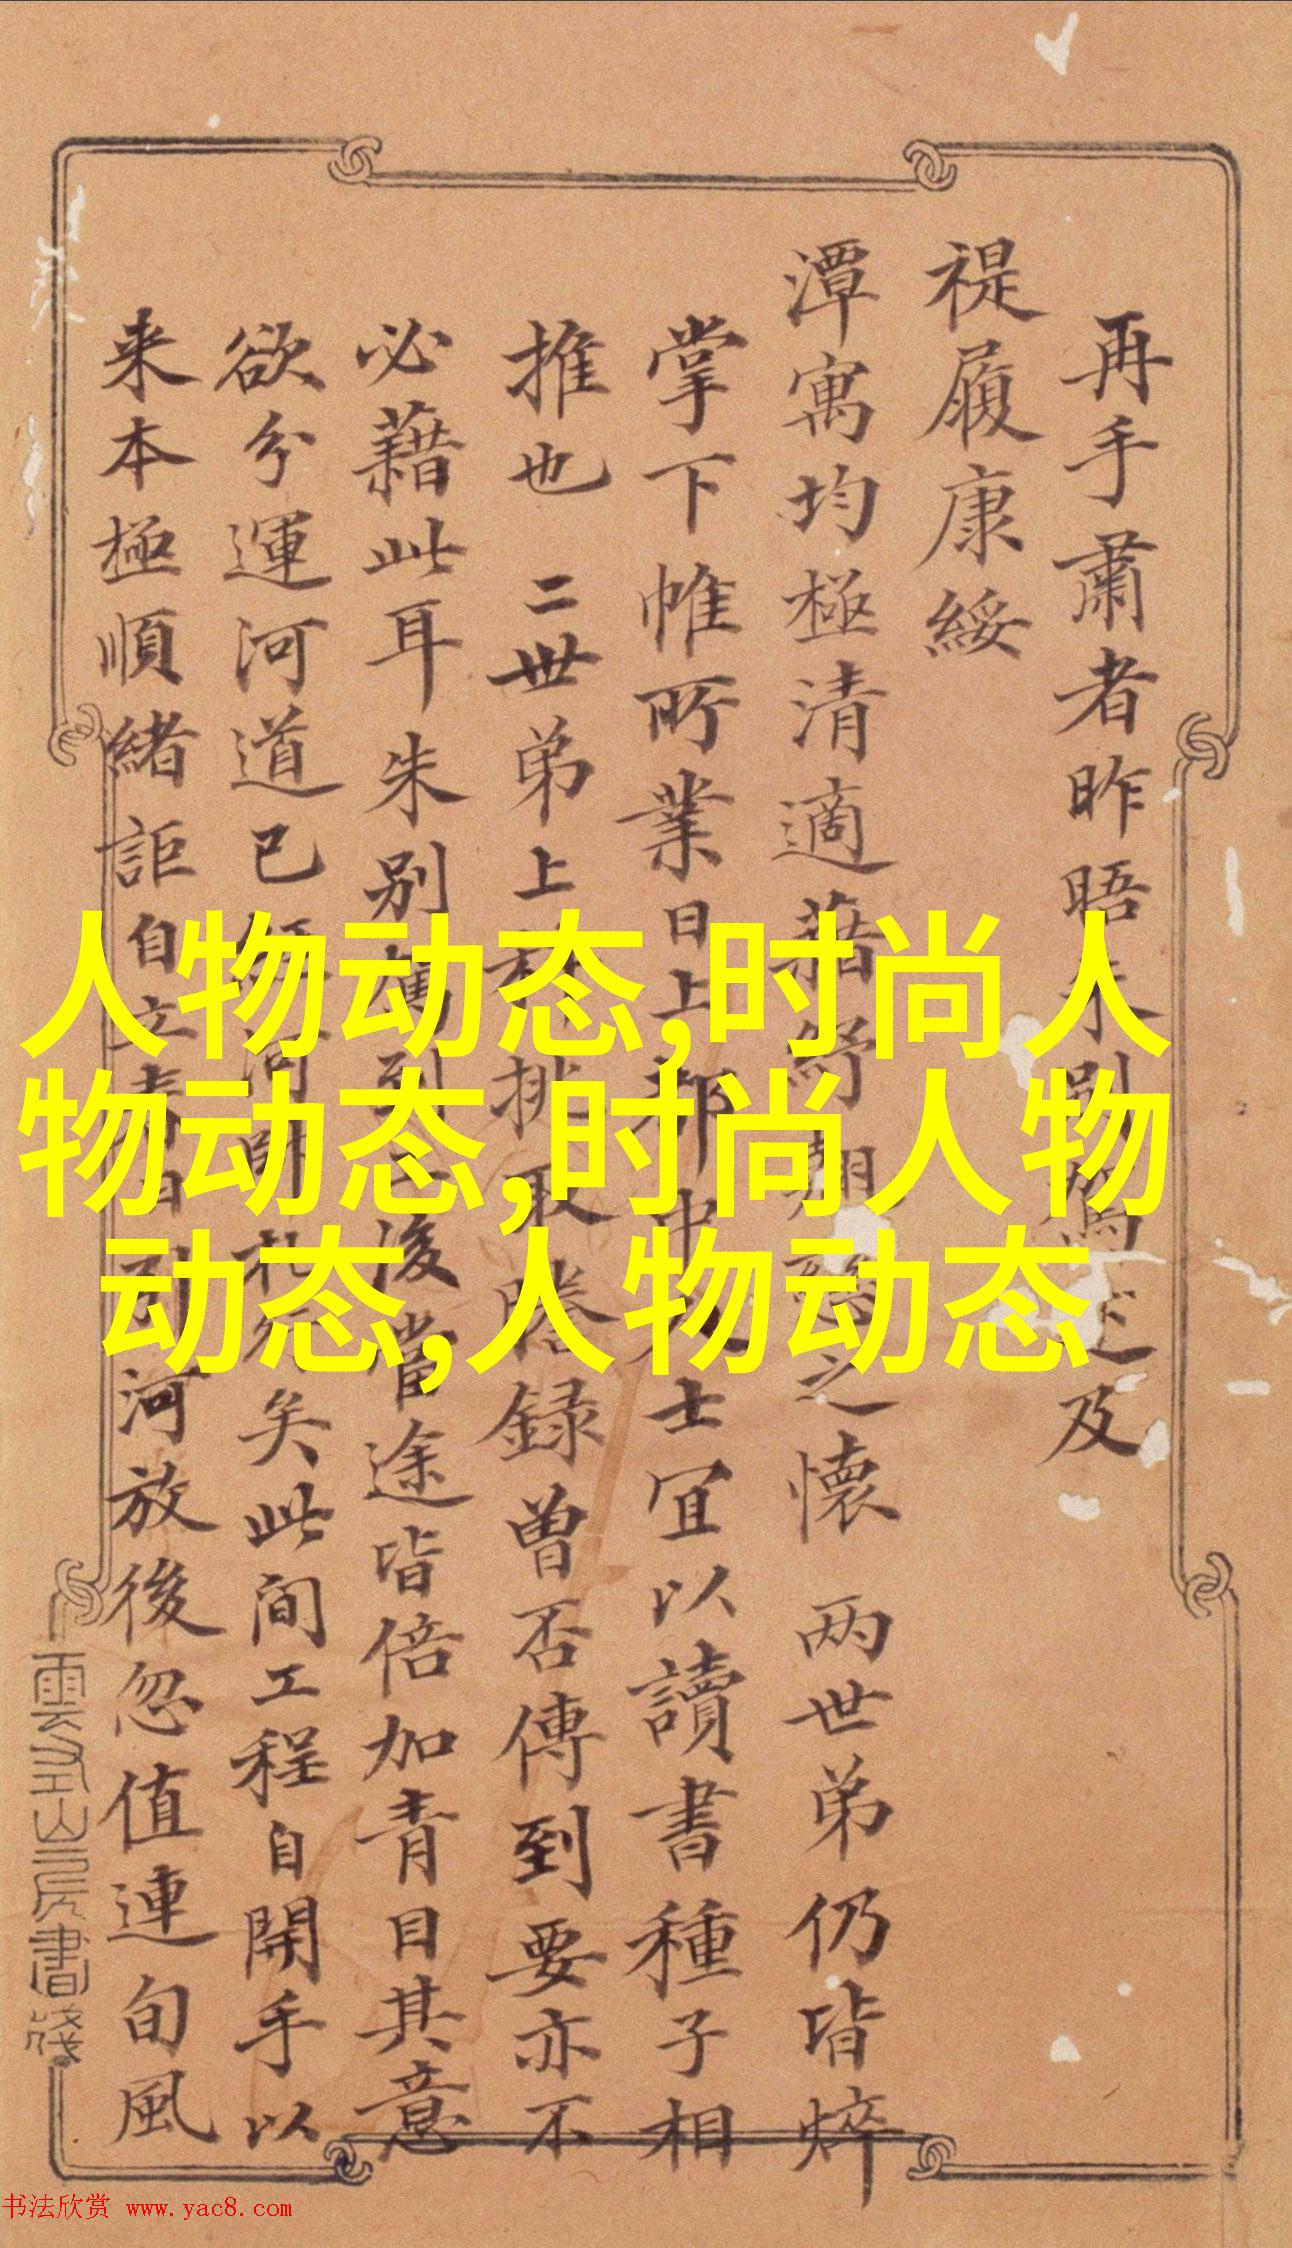 再手肅者昨晤
及
禔履康綏
潭寓均極清適藉紓
之懷 两世弟仍皆焠
掌下帷所業日上
士宜以讀書種子相
推也 二世弟上
挑取謄録曾否傳到要亦不
必藉此耳朱别
後當途皆倍加青目其意
欲分運河道已
矣此间工程自開手以
来本極順緒詎自立
河放後忽值連旬風
雲
山房書箋
人物动态,时尚人
物动态,时尚人物
动态,人物动态
书法欣赏 www.yac8.com